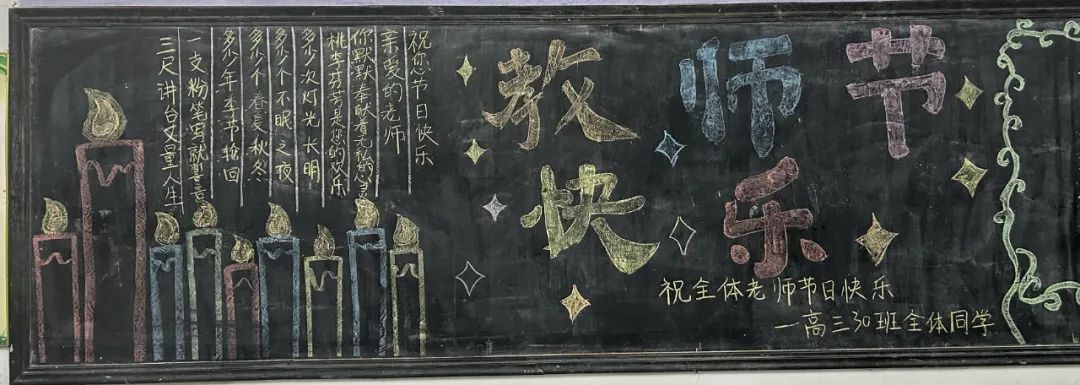 教师节
快乐
三尺讲台丈量人生
一支粉笔写就
多少年季节轮回
多少个春夏秋冬
多少个不眠之夜
多少次灯光长明
桃李芬芳是您的欢乐
你默默奉献着无私的
亲爱的老师
祝您节日快乐
祝全体老师节日快乐
一高三30班全体同学